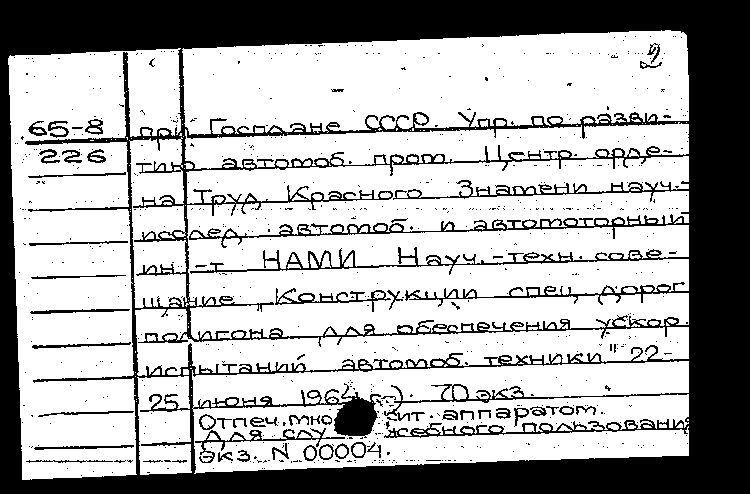 2
65-8
226
при Госплане СССР. Упр. по разви-
тию автомоб. пром. Центр. орде-
на Труд. Красного Знамени науч.-
исслед. автомоб. и автомоторный
ин-т НАМИ Науч.-техн. сове-
щание "Конструкции спец. дорог
полигона для обеспечения ускор.
испытаний автомоб. техники" 22-
25 июня 1964 г.). 70 экз.
Отпеч. мно жит. аппаратом.
Для слу жебного пользования
экз. N 00004.